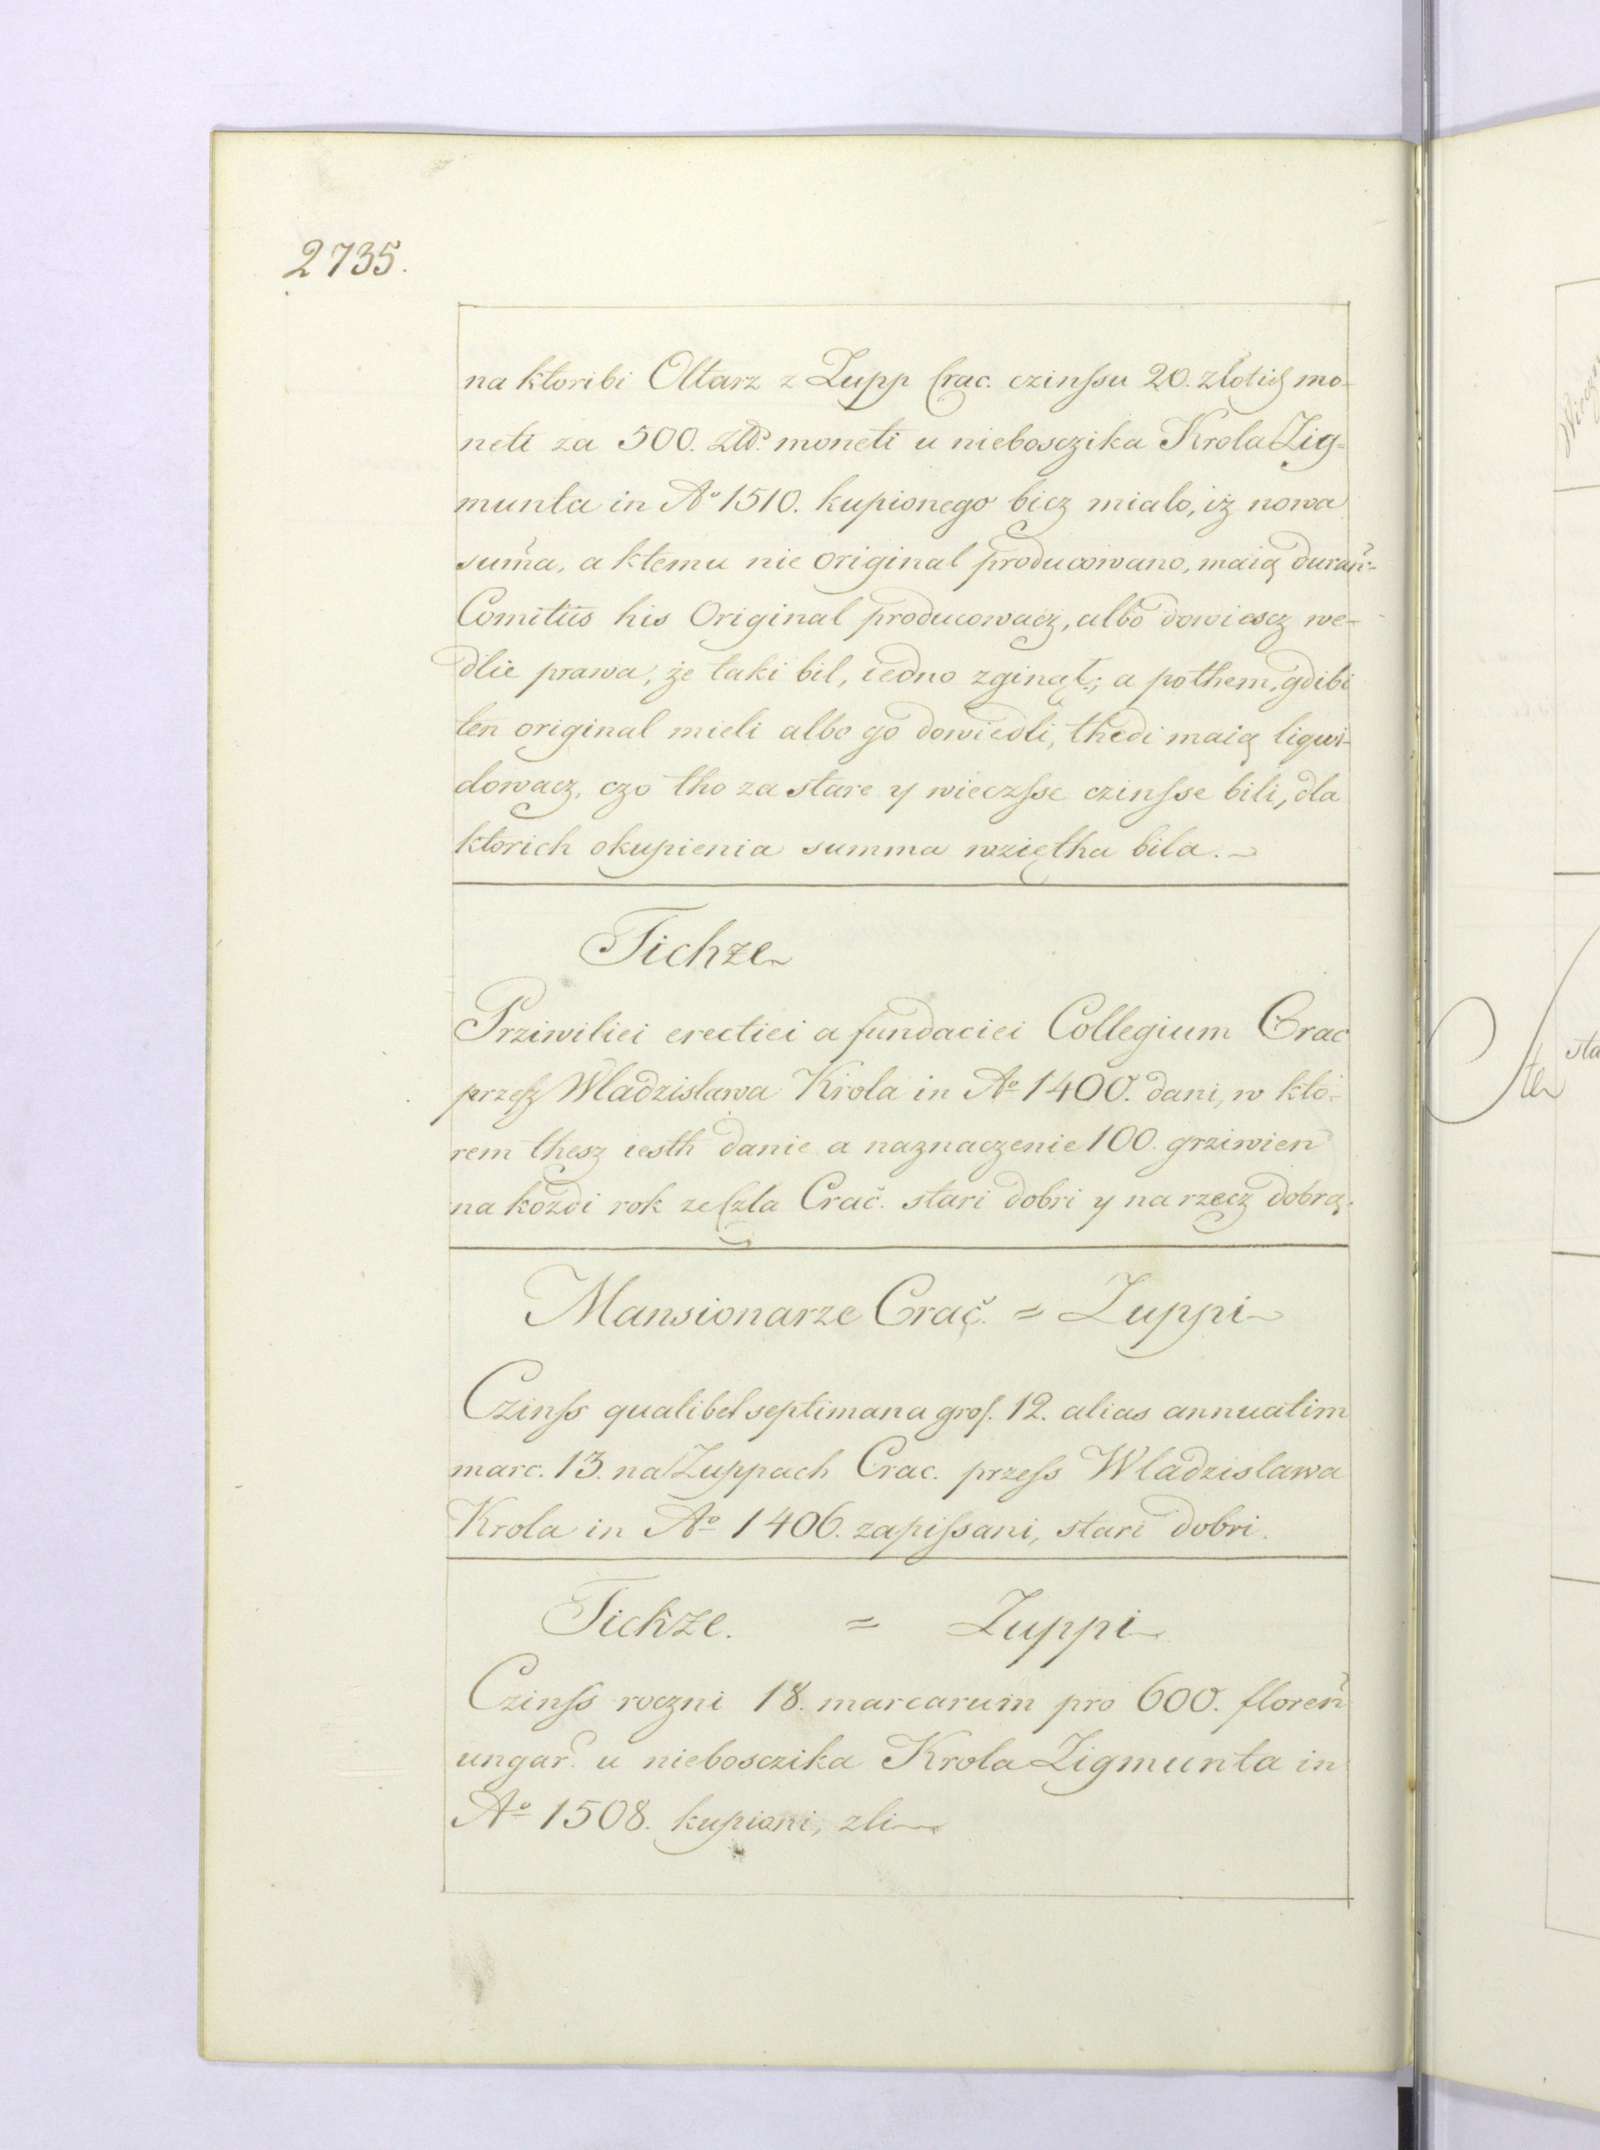 2735.
na ktoribi Oltarz z Zupp Crac. czinssu 20. złotich mo-
neti za 500. złł. moneti u nieboszczika Krola Zig-
munta in Aº 1510. kupionego bicz mialo, iż nowa
suma, a ktemu nie original producowano, maią duran-
Comitiis his Original producowacz, albo dowiescz we-
dlie prawa, że taki bil, iedno zginął; a pothem, gdibi
ten original mieli albo go dowiedli, thedi maią liqwi-
dowacz, czo tho za stare y wieczsse czinsse bili, dla
ktorich okupienia summa wziętha bila.
Tichże
Prziwiliei erectiei a fundaciei Collegium Crac
przesz Wladzislawa Krola in Aº 1400. dani, w kto-
rem thesz iesth danie a naznaczenie 100. grziwien
na kożdi rok ze Czla Crac. stari dobri y na rzecz dobrą.
Mansionarze Crac. = Zuppi
Czinss qualibet septimana gros. 12. alias annuatim
marc. 13. na Zuppach Crac. przess Wladzislawa
Krola in Aº 1406. zapissani, stari dobri.
Tichże. = Zuppi
Czinss roczni 18. marcarum pro 600. floren
ungar. u nieboszczika Krola Zigmunta in
Aº 1508. kupioni, zli